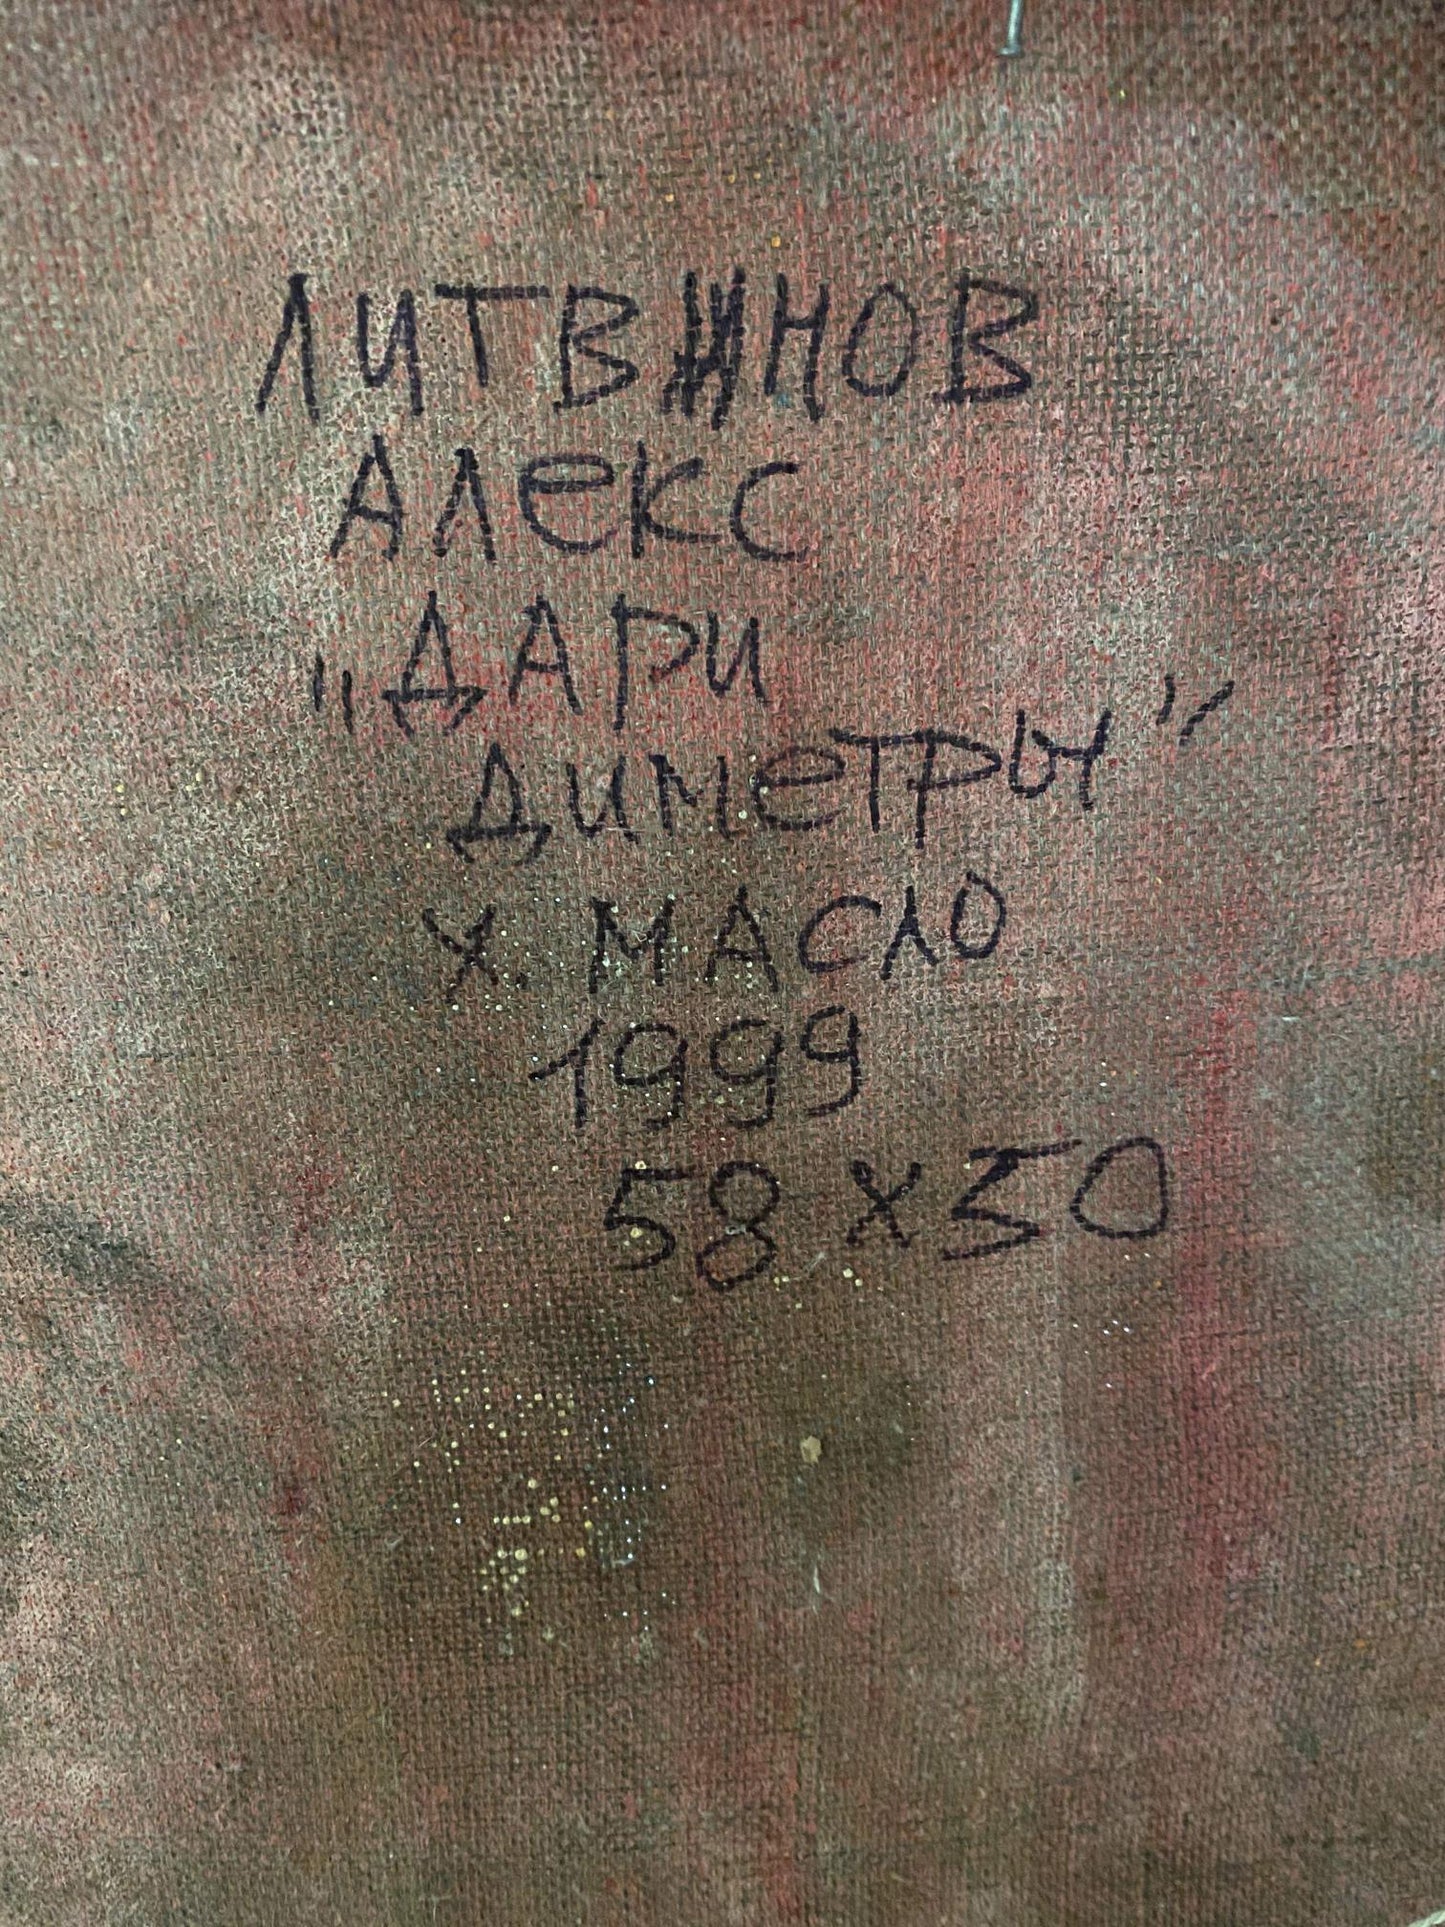 ЛИТВИНОВ
АЛЕКС
"ДАРИ
ДИМЕТРЫ"
Х. МАСЛО
1999
58 х 50